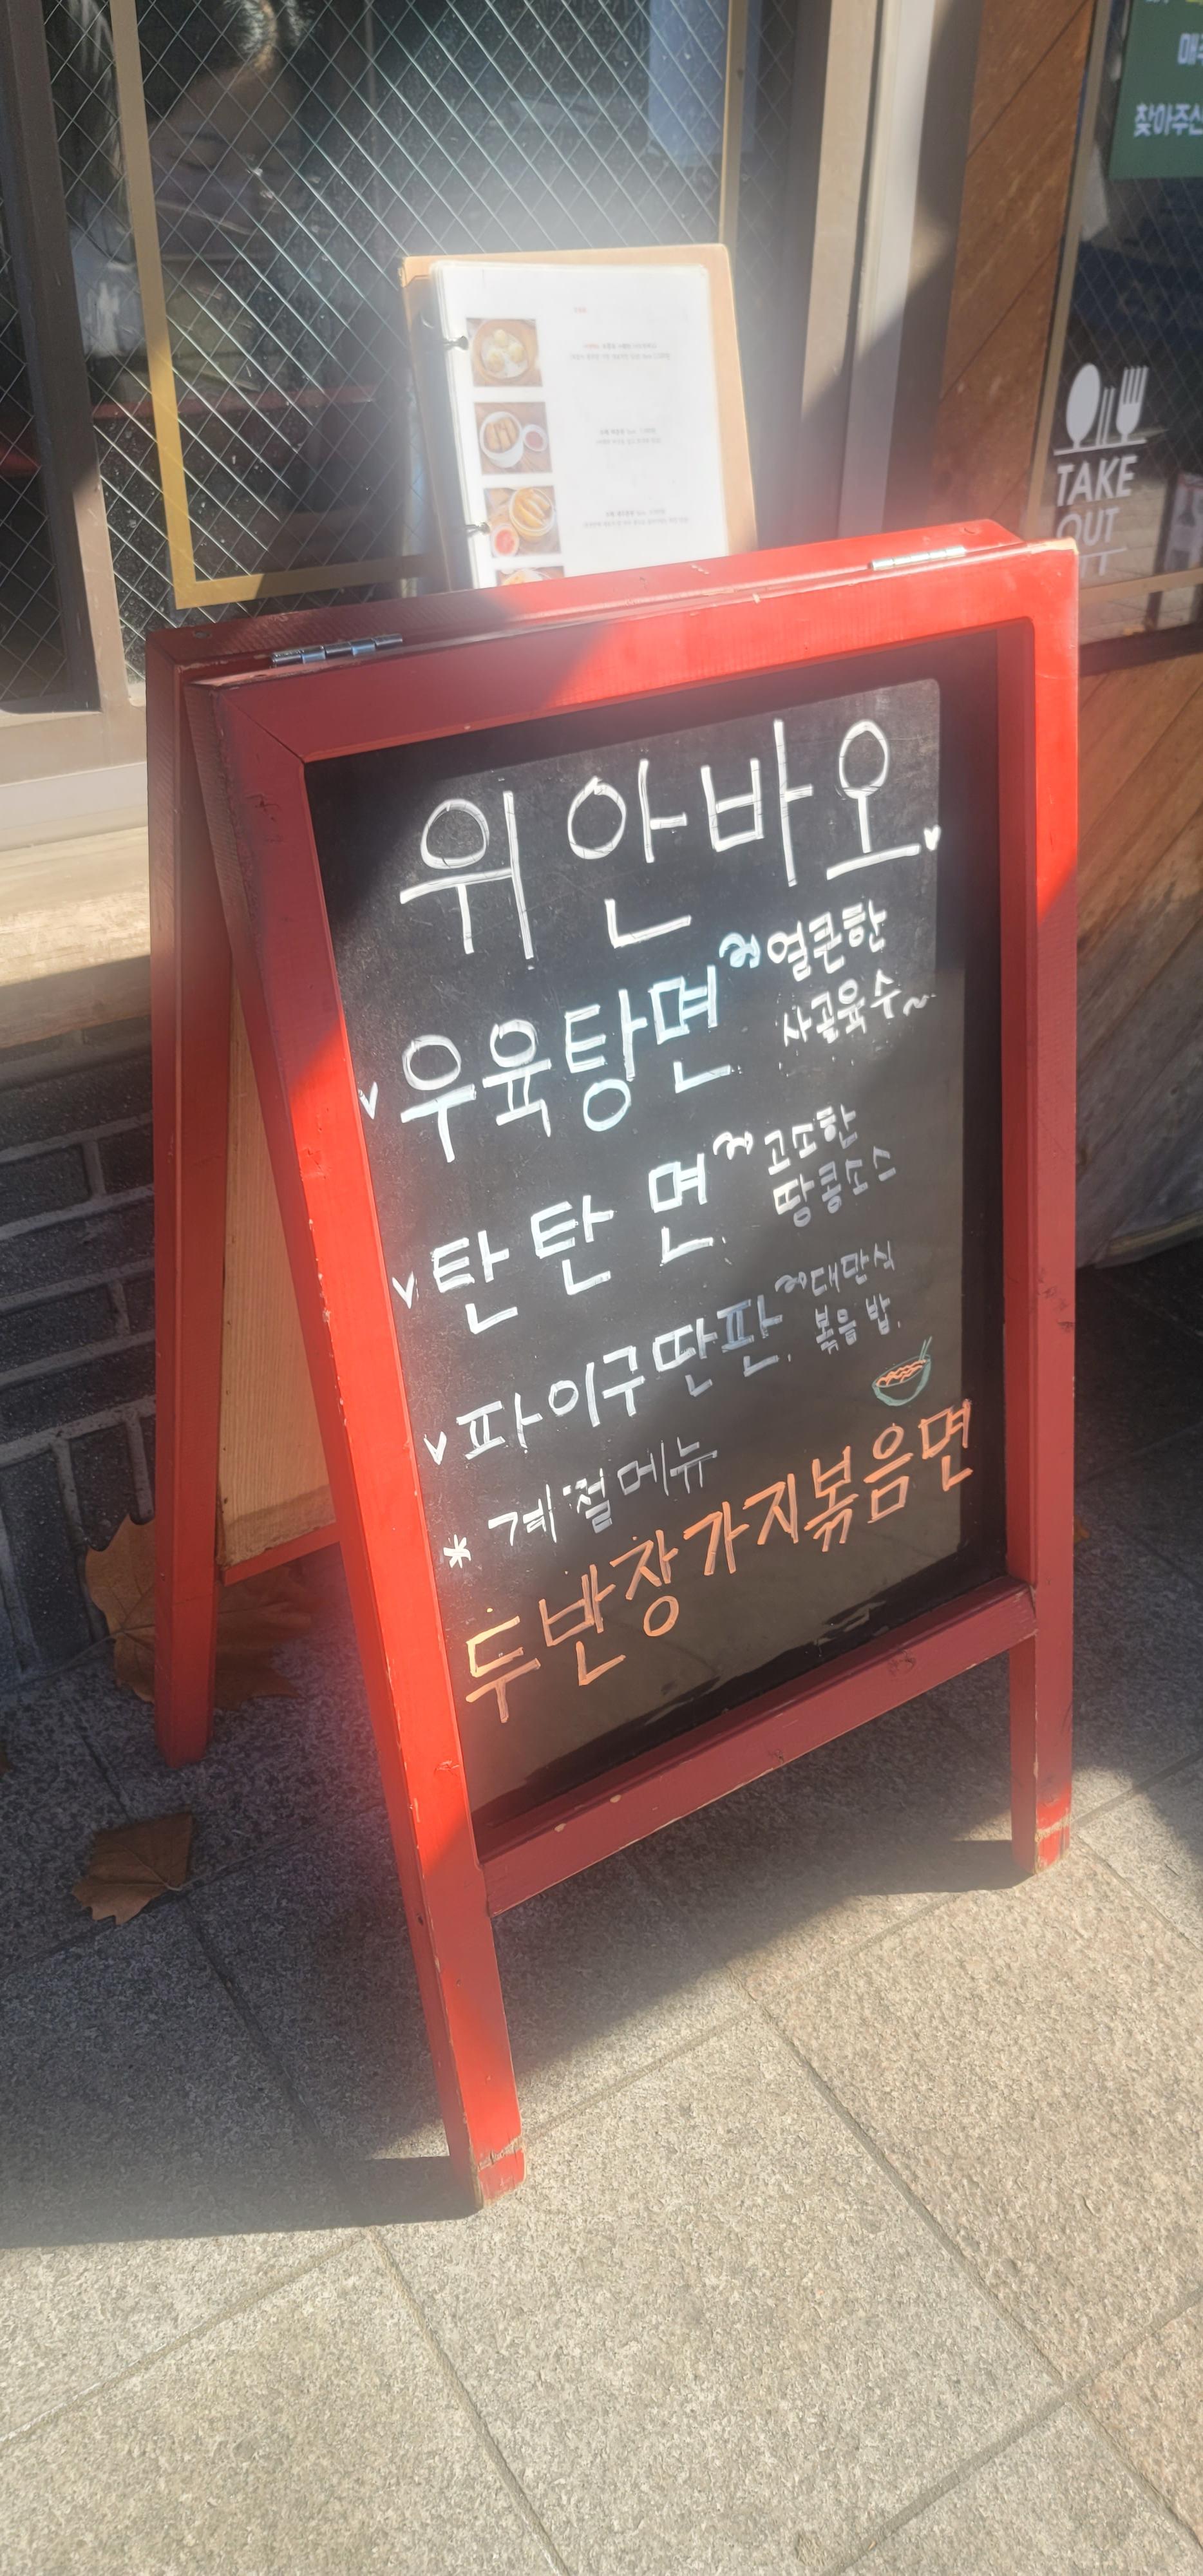 위안바오
우육탕면 얼큰한
사골육수~
탄탄면 고소한
땅콩소스
파이구딴판. 대만식
볶음밥.
* 계절메뉴
두반장가지볶음면
찾아주신
TAKE
OUT